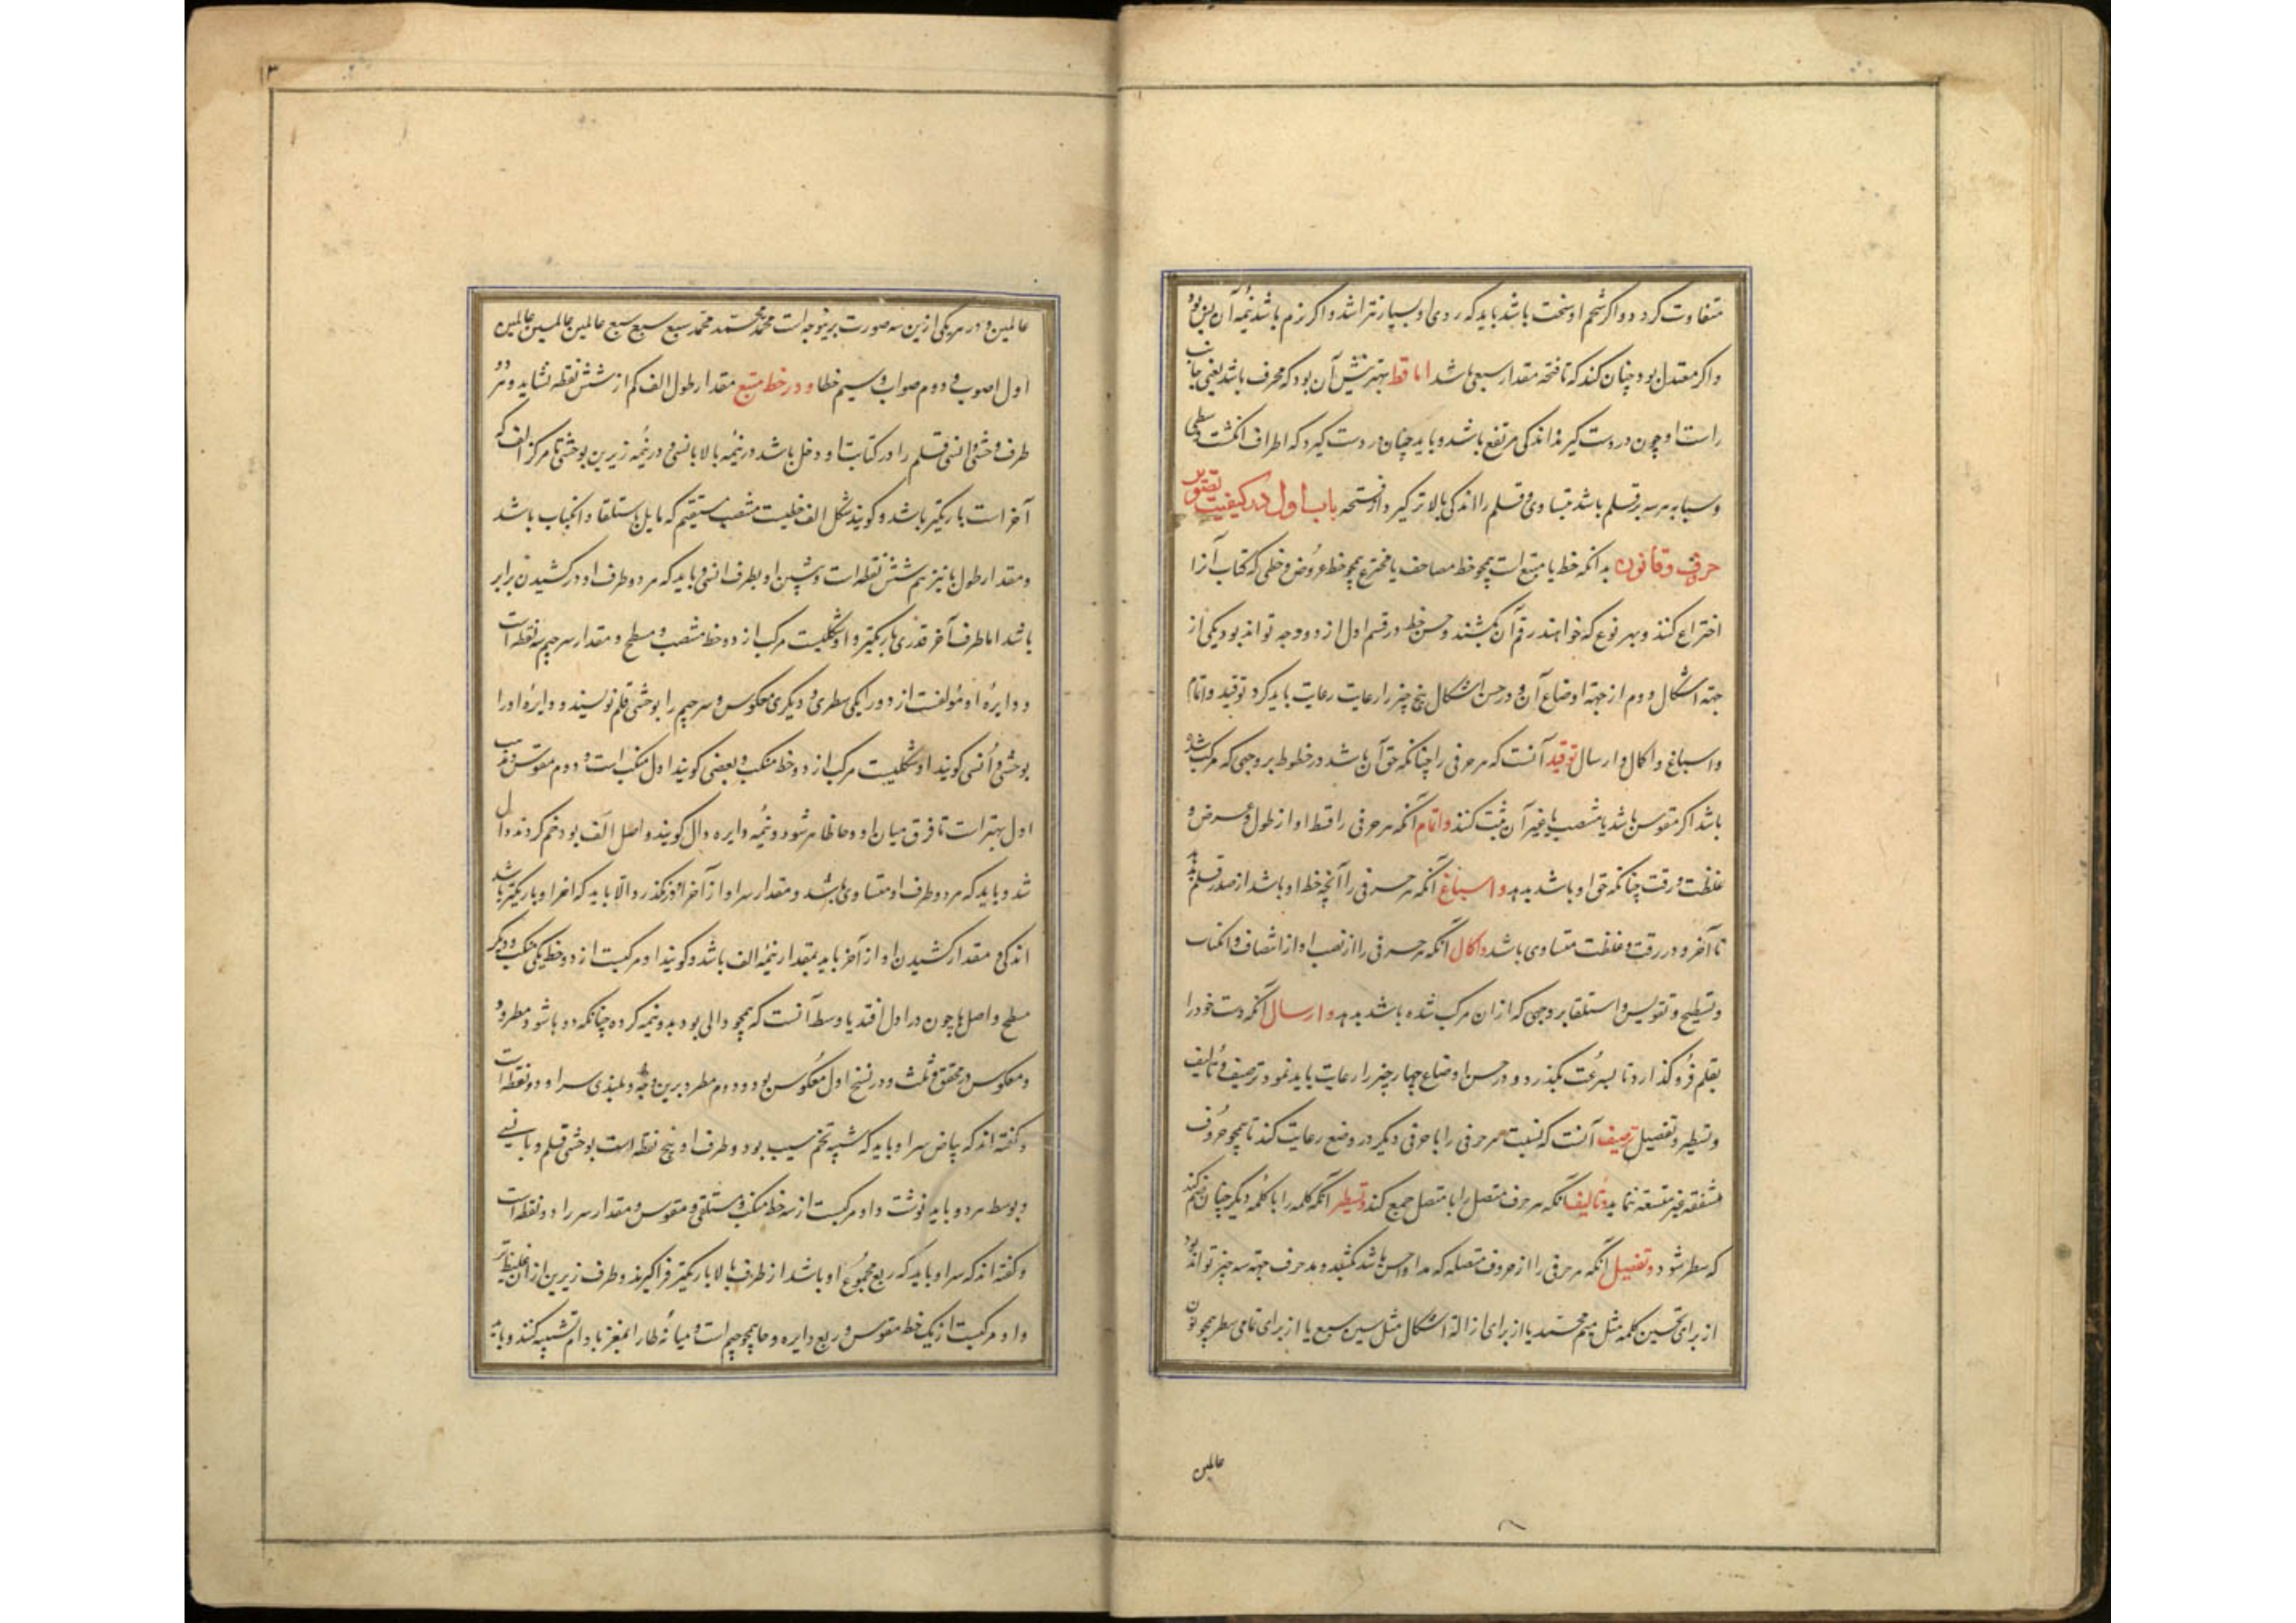 متفاوت کردد و اکر شحم او سخت باشد باید که روی او بسیار نتراشد و اکر نرم باشد نیمهٔ آن پس بود
و اکر معتدل بود چنان کند که تا فتحه مقدار سبعی باشد اما قط بهترینش آن بود که محرف باشد یعنی جانب
راست او چون در دست کیرند اندکی مرتفع باشد و باید چنان در دست کیرد که اطراف انکشت وسطی
و سبابه هر سه بر قلم باشد متساوی و قلم را اندکی بالاتر کیرد از فتحه باب اول در کیفیت تصویر
حروف و قانون بدانکه خط یا متبع است همچو خط مصاحف یا مخترع همچو خط عروض و خطی که کتاب آنرا
اختراع کنند و بهر نوع که خواهند رقم آن بکشند و حسن خط در قسم اول از دو وجه تواند بود یکی از
جهة اشکال و دوم از جهة اوضاع آن و در حسن اشکال پنج چیز را رعایت رعایت باید کرد توفید و اتمام
و اسباغ و اکمال و ارسال توفید آنست که هر حرفی را چنانکه حق آن باشد در خطوط بر وجهی که مرکب شده
باشد اکر مقوس باشد یا منتصب یا غیر آن ثبت کنند و اتمام آنکه هر حرفی را قسط او از طول و عرض و
غلظت و رقت چنانکه حق او باشد بدهد و اسباغ آنکه هر حرفی را آنچه خط او باشد از صدر قلم بدهد
تا آخر و در رقت و غلظت متساوی باشد و اکمال آنکه هر حرفی را از نصب او از انتصاف و انکباب
و تسطیح و تقویس و استلقا بر وجهی که از ان مرکب شده باشد بدهد و ارسال آنکه دست خود را
بقلم فرو کذارد تا بسرعت بکذرد و در حسن اوضاع چهار چیز را رعایت باید نمود ترصیف و تألیف
و تسطیر و تفصیل ترصیف آنست که نسبت هر حرفی را با حرفی دیکر در وضع رعایت کند تا همچو حروف
متفقه غیر متسعه نماید و تألیف آنکه هر حرف متصل را با متصل جمع کند و تسطیر آنکه کلمه را با کلمه دیکر چنان ضم کند
که سطر شود و تفصیل آنکه هر حرفی را از حروف متصله که مد او حسن باشد بکشد و مد حرف جهة سه چیز تواند بود
از برای تحسین کلمه مثل میم محمد یا از برای ازالة اشکال مثل سین سبع یا از برای تمامی سطر همچو نون
عالمین
۳
عالمین و در هر یکی ازین سه صورت برینوجه است محمد محمد محمد سبع سبع سبع عالمین عالمین عالمین
اول اصوب و دوم صواب و سیم خطا و در خط متبع مقدار طول الف کم از شش نقطه نشاید و هر دو
طرف وحشی و انسی قلم را در کتابت او دخل باشد در نیمه بالا بانسی و در نیمه زیرین بوحشی تا مرکز الف که
آخر است باریکتر باشد و کویند شکل الف خطیست منتصب مستقیم که مایل باستلقا و انکباب باشد
و مقدار طول با نیز هم شش نقطه است و شین او بطرف انسی و باید که هر دو طرف او در کشیدن برابر
باشد اما طرف آخر قدری باریکتر و او شکلیست مرکب از دو خط منتصب و مسطح و مقدار سر جیم سه نقطه است
و دایرهٔ او مؤلفست از دور یکی سطری و دیکری معکوس و سر جیم را بوحشی قلم نویسند و دایرهٔ او را
بوحشی و انسی کویند او شکلیست مرکب از دو خط منکب و بعضی کویند اول منکب است و دوم مقوس و مذهب
اول بهتر است تا فرق میان او و حا ظاهر شود و نیمهٔ دایره دال کویند و اصل الف بود خم کردند دال
شد و باید که هر دو طرف او متساوی باشد و مقدار سر او از آخر او نکذرد و الا باید که اخر او باریکتر باشد
اندکی مقدار کشیدن او از آخر باید بمقدار نیمه الف باشد و کویند او مرکبست از دو خط یکی منکب و دیکر
مسطح و اصل ها چون در اول افتد یا وسط آنست که همچو دالی بود بدو نیمه کرده چنانکه دو با شود مطرود
و معکوس در محقق و ثلث و در نسخ اول معکوس بود و دوم مطرد برین وجه و بلندی سر او دو نقطه است
و کفته اند که بیاض سر او باید که شبیه تخم سیب بود و طرف او پنج نقطه است بوحشی قلم و با نسی
و بوسط هر دو باید نوشت و او مرکبست از سه خط منکب و مستلقی و مقوس و مقدار سر را دو نقطه است
و کفته اند که سر او باید که ربع مجموع او باشد از طرف بالا باریکتر فرا کیرند و طرف زیرین از ان غلیظ تر
و او مرکبست از یک خط مقوس و ربع دایره و حا همچو جیم است و میانهٔ طا را بمغز بادام تشبیه کنند و باید